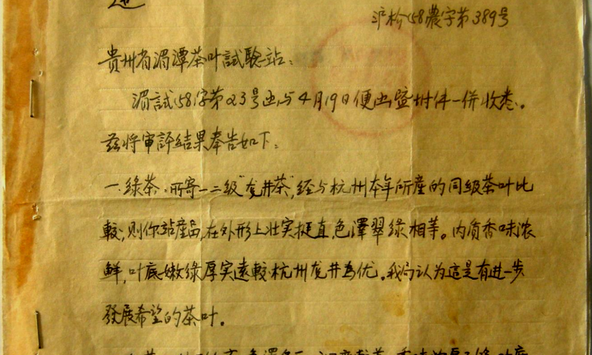 沪检(58)農字第389号
贵州省湄潭茶叶試驗站:
湄試(58)字第023号函与4月19日便函暨附件一併收悉。
兹将审評結果奉告如下:
一.绿茶.所寄一二級"龙井茶",经与杭州本年所產的同級茶叶比
較,則你站產品,在外形上壮实挺直,色澤翠绿相等。内质香味浓
鲜,叶底嫩绿厚实遠較杭州龙井為优。我局认为這是有進一步
發展希望的茶叶。